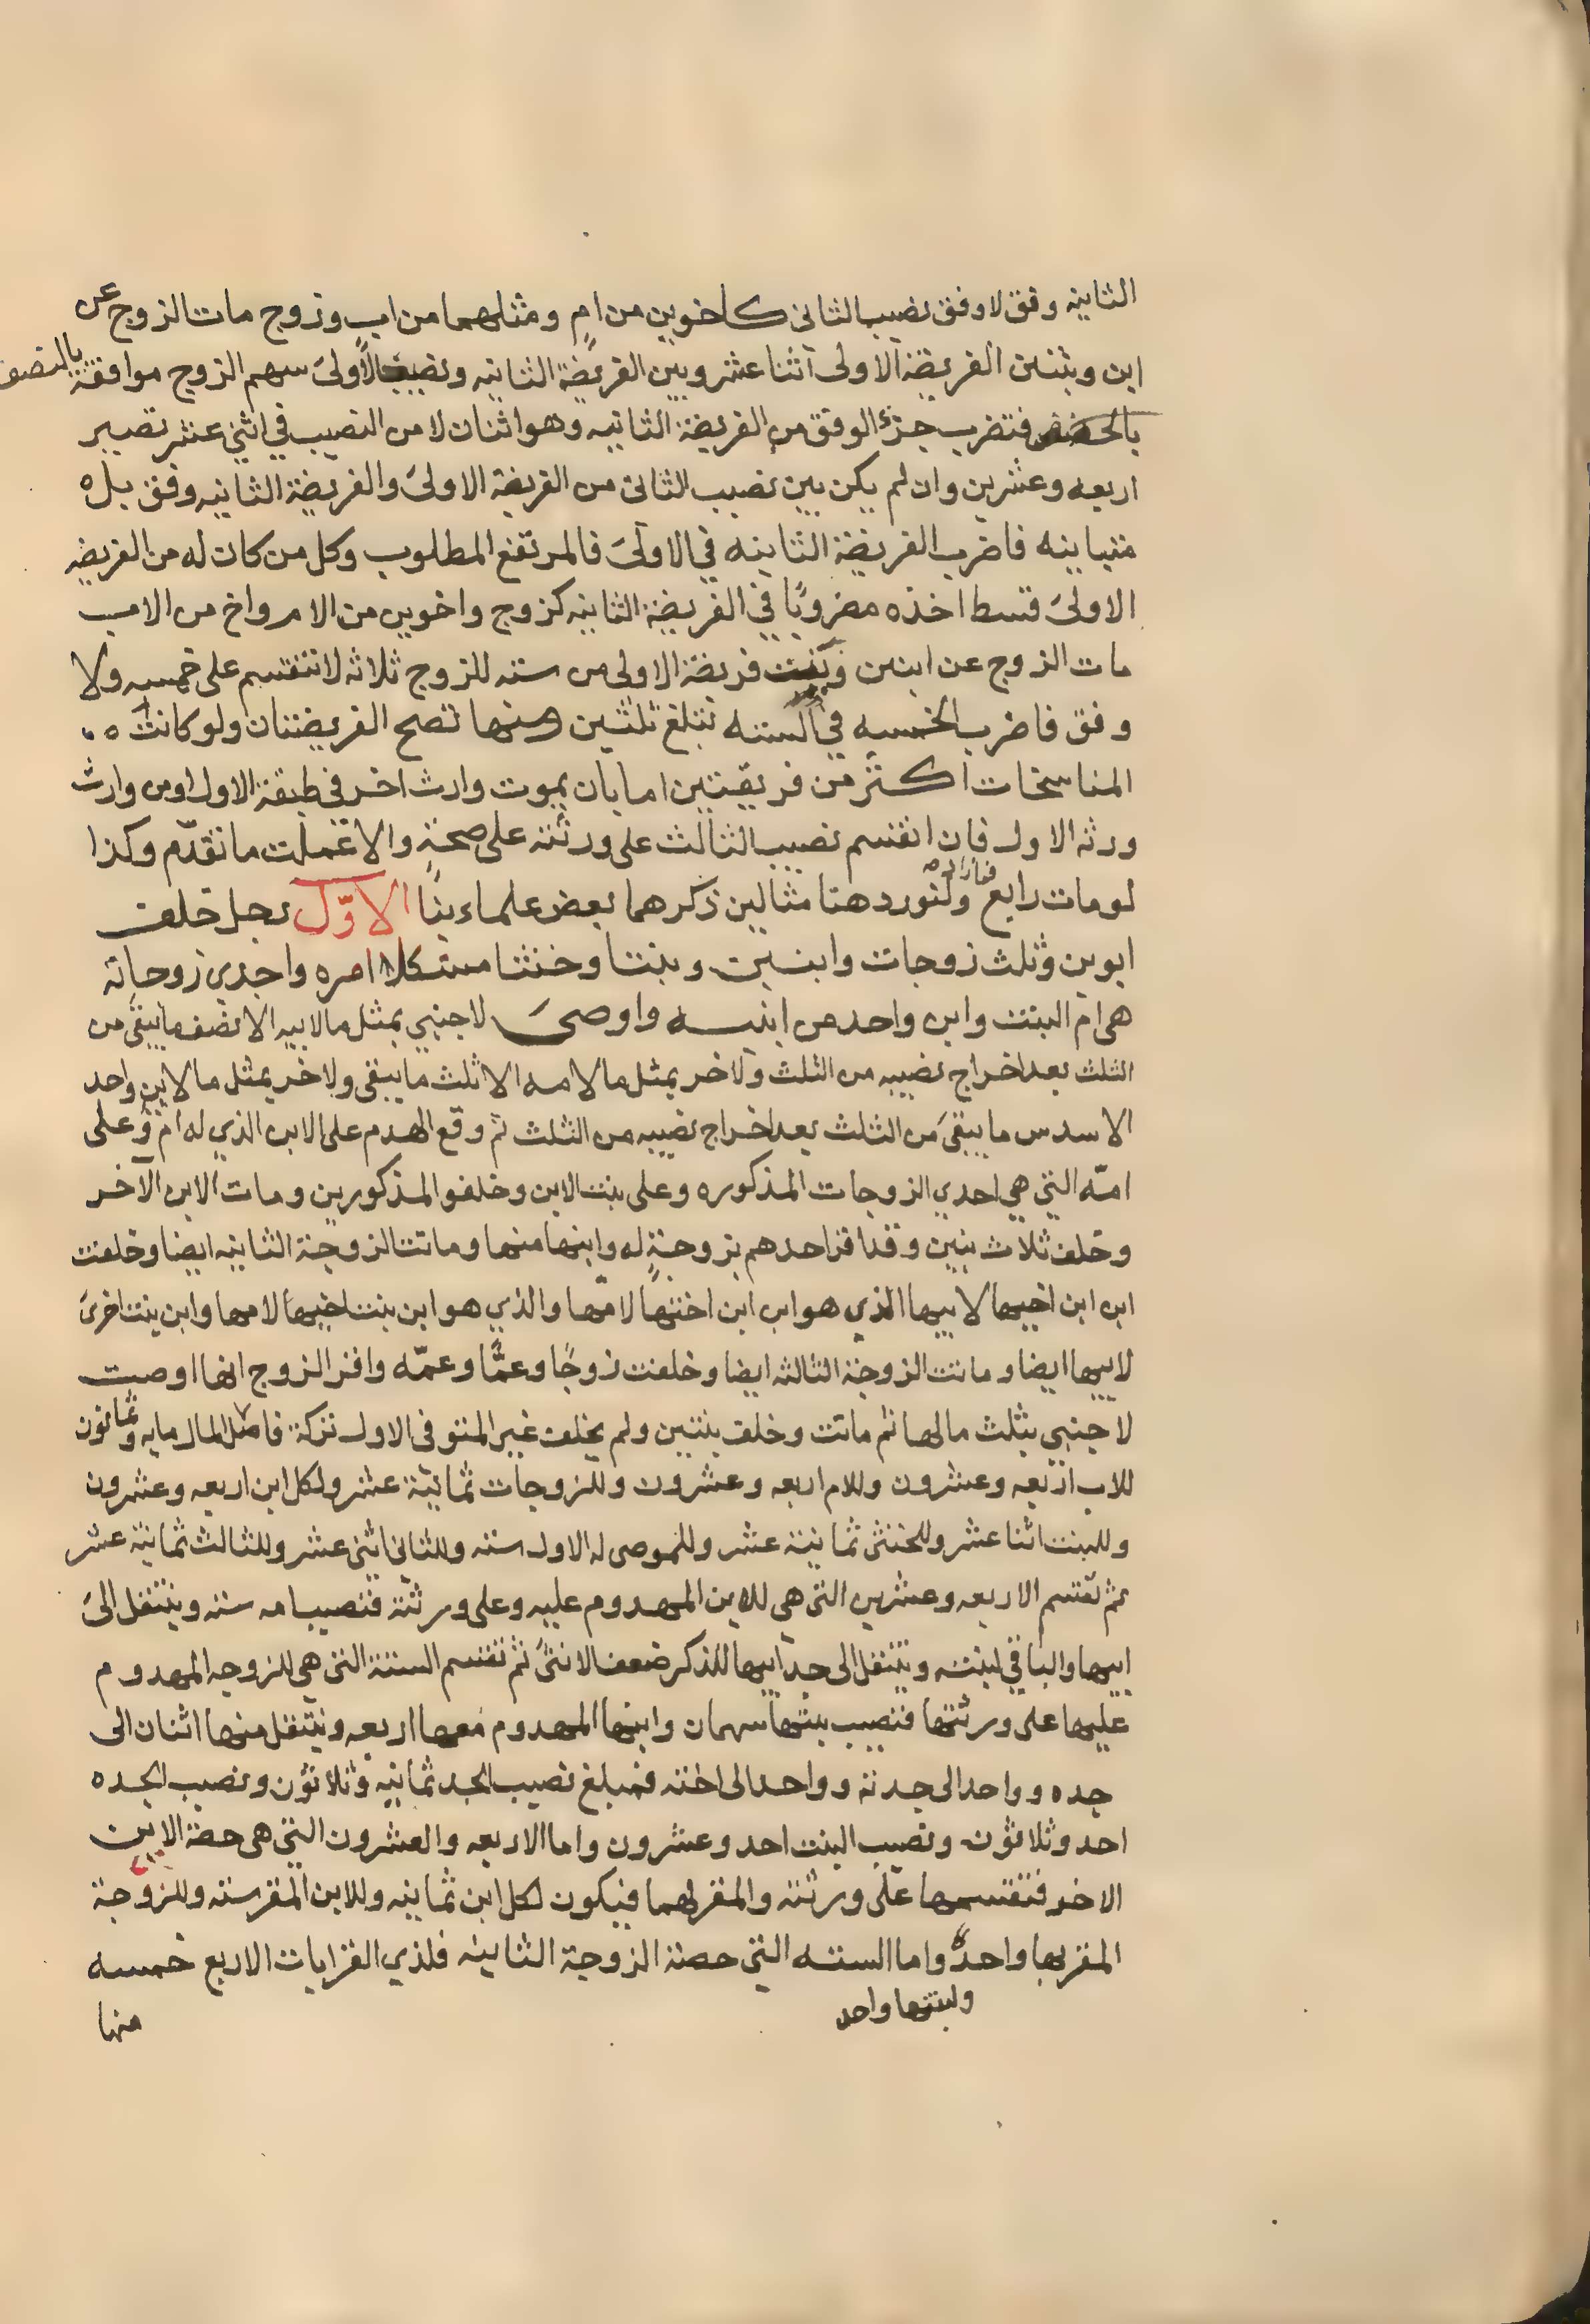 الثانيه وفق لا وفق نصيب الثاني كاخوين من ام ومثلهما من اب وزوج مات الزوج عن
ابن وبنتين الفريضة الاولى اثنا عشر وبين الفريضة الثانيه ونصيب الاولى سهم الزوج موافقة بالنصف
فتضرب جزء الوفق من الفريضة الثانيه وهو اثنان لا من النصيب في اثني عشر تصير
اربعه وعشرين وان لم يكن بين نصيب الثاني من الفريضة الاولى والفريضة الثانيه وفق بل
متباينه فاضرب الفريضة الثانيه في الاولى فالمرتفع المطلوب وكل من كان له من الفريضه
الاولى قسط اخذه مضروبًا في الفريضة الثانيه كزوج واخوين من الام واخ من الاب
مات الزوج عن ابنين وبنت فريضة الاولى من سته للزوج ثلاثه لا تنقسم على خمسه ولا
وفق فاضرب الخمسه في السته تبلغ ثلثين ومنها تصح الفريضتان ولو كانت
المناسخات اكثر من فريضتين اما بان يموت وارث اخر في طبقة الاول او من وارث
ورثه الاول فان انقسم نصيب الثالث على ورثته على صحة والا عملت ما تقدّم وكذا
لو مات رابع فما زاد ولنورد هنا مثالين ذكرهما بعض علماءينا الاوّل رجل خلف
ابوين وثلث زوجات وابنين وبنتا وخنثا مشكلا امره واحدي زوجاته
هي ام البنت وابن واحد من ابنيه واوصى لاجنبي بمثل ما لابيه الا نصف ما يبقى من
الثلث بعد اخراج نصيبه من الثلث ولاخر بمثل ما لامه الا ثلث ما يبقى ولاخر بمثل ما لابن واحد
الا سدس ما يبقى من الثلث بعد اخراج نصيبه من الثلث ثم وقع الهدم على الابن الذي له ام وعلى
امّه التي هي احدي الزوجات المذكوره وعلى بنت الابن وخلفوا المذكورين ومات الابن الآخر
وخلف ثلاث بنين وقد اقر احدهم بزوجةٍ له وابنها منها وماتت الزوجة الثانيه ايضا وخلفت
ابن ابن اخيها لابيها الذي هو ابن ابن اختها لامّها والذي هو ابن بنت اخيها لامها وابن بنت اخرى
لابيها ايضا وماتت الزوجة الثالثه ايضا وخلفت زوجًا وعمًّا وعمّه واقر الزوج انها اوصيت
لاجنبي بثلث مالها ثم ماتت وخلف بنتين ولم يخلف غير المتوفى الاول تركة فاصل المال مايه وثمانون
للاب اربعه وعشرون وللام اربعه وعشرون وللزوجات ثمانية عشر ولكل ابن اربعه وعشرون
وللبنت اثنا عشر وللخنثى ثمانية عشر وللموصى له الاول سته وللثاني اثنى عشر وللثالث ثمانية عشر
ثم تقسم الاربعه وعشرين التي هي للابن المهدوم عليه وعلى ورثته فنصيب امه سته وينتقل الى
ابيها والباقي لبنته وينتقل الى جد ابيها للذكر ضعف الانثى ثم تقسم الستة التي هي للزوجه المهدوم
عليها على ورثتها فنصيب بنتها سهمان وابنها المهدوم معها اربعه وينتقل منها اثنان الى
جده وواحد الى جدته وواحد الى اخته فمبلغ نصيب الجد ثمانيه وثلاثون ونصيب الجده
احد وثلاثون ونصيب البنت احد وعشرون واما الاربعه والعشرون التي هي حصة الابن
الاخر فتقسمها على ورثته والمقر لهما فيكون لكل ابن ثمانيه وللابن المقر سته وللزوجة
المقر بها واحد واما السته التي حصة الزوجة الثانيه فلذي القرابات الاربع خمسه
ولبنتها واحد
منها